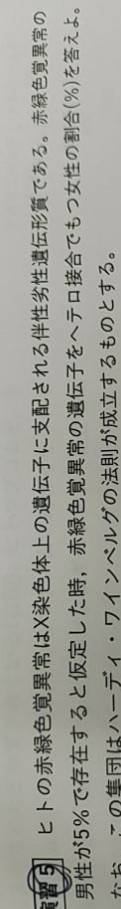 演習5 ヒトの赤緑色覚異常はX染色体上の遺伝子に支配される伴性劣性遺伝形質である。赤緑色覚異常の
男性が5%で存在すると仮定した時，赤緑色覚異常の遺伝子をヘテロ接合でもつ女性の割合(%)を答えよ。
なお，この集団はハーディ・ワインベルグの法則が成立するものとする。